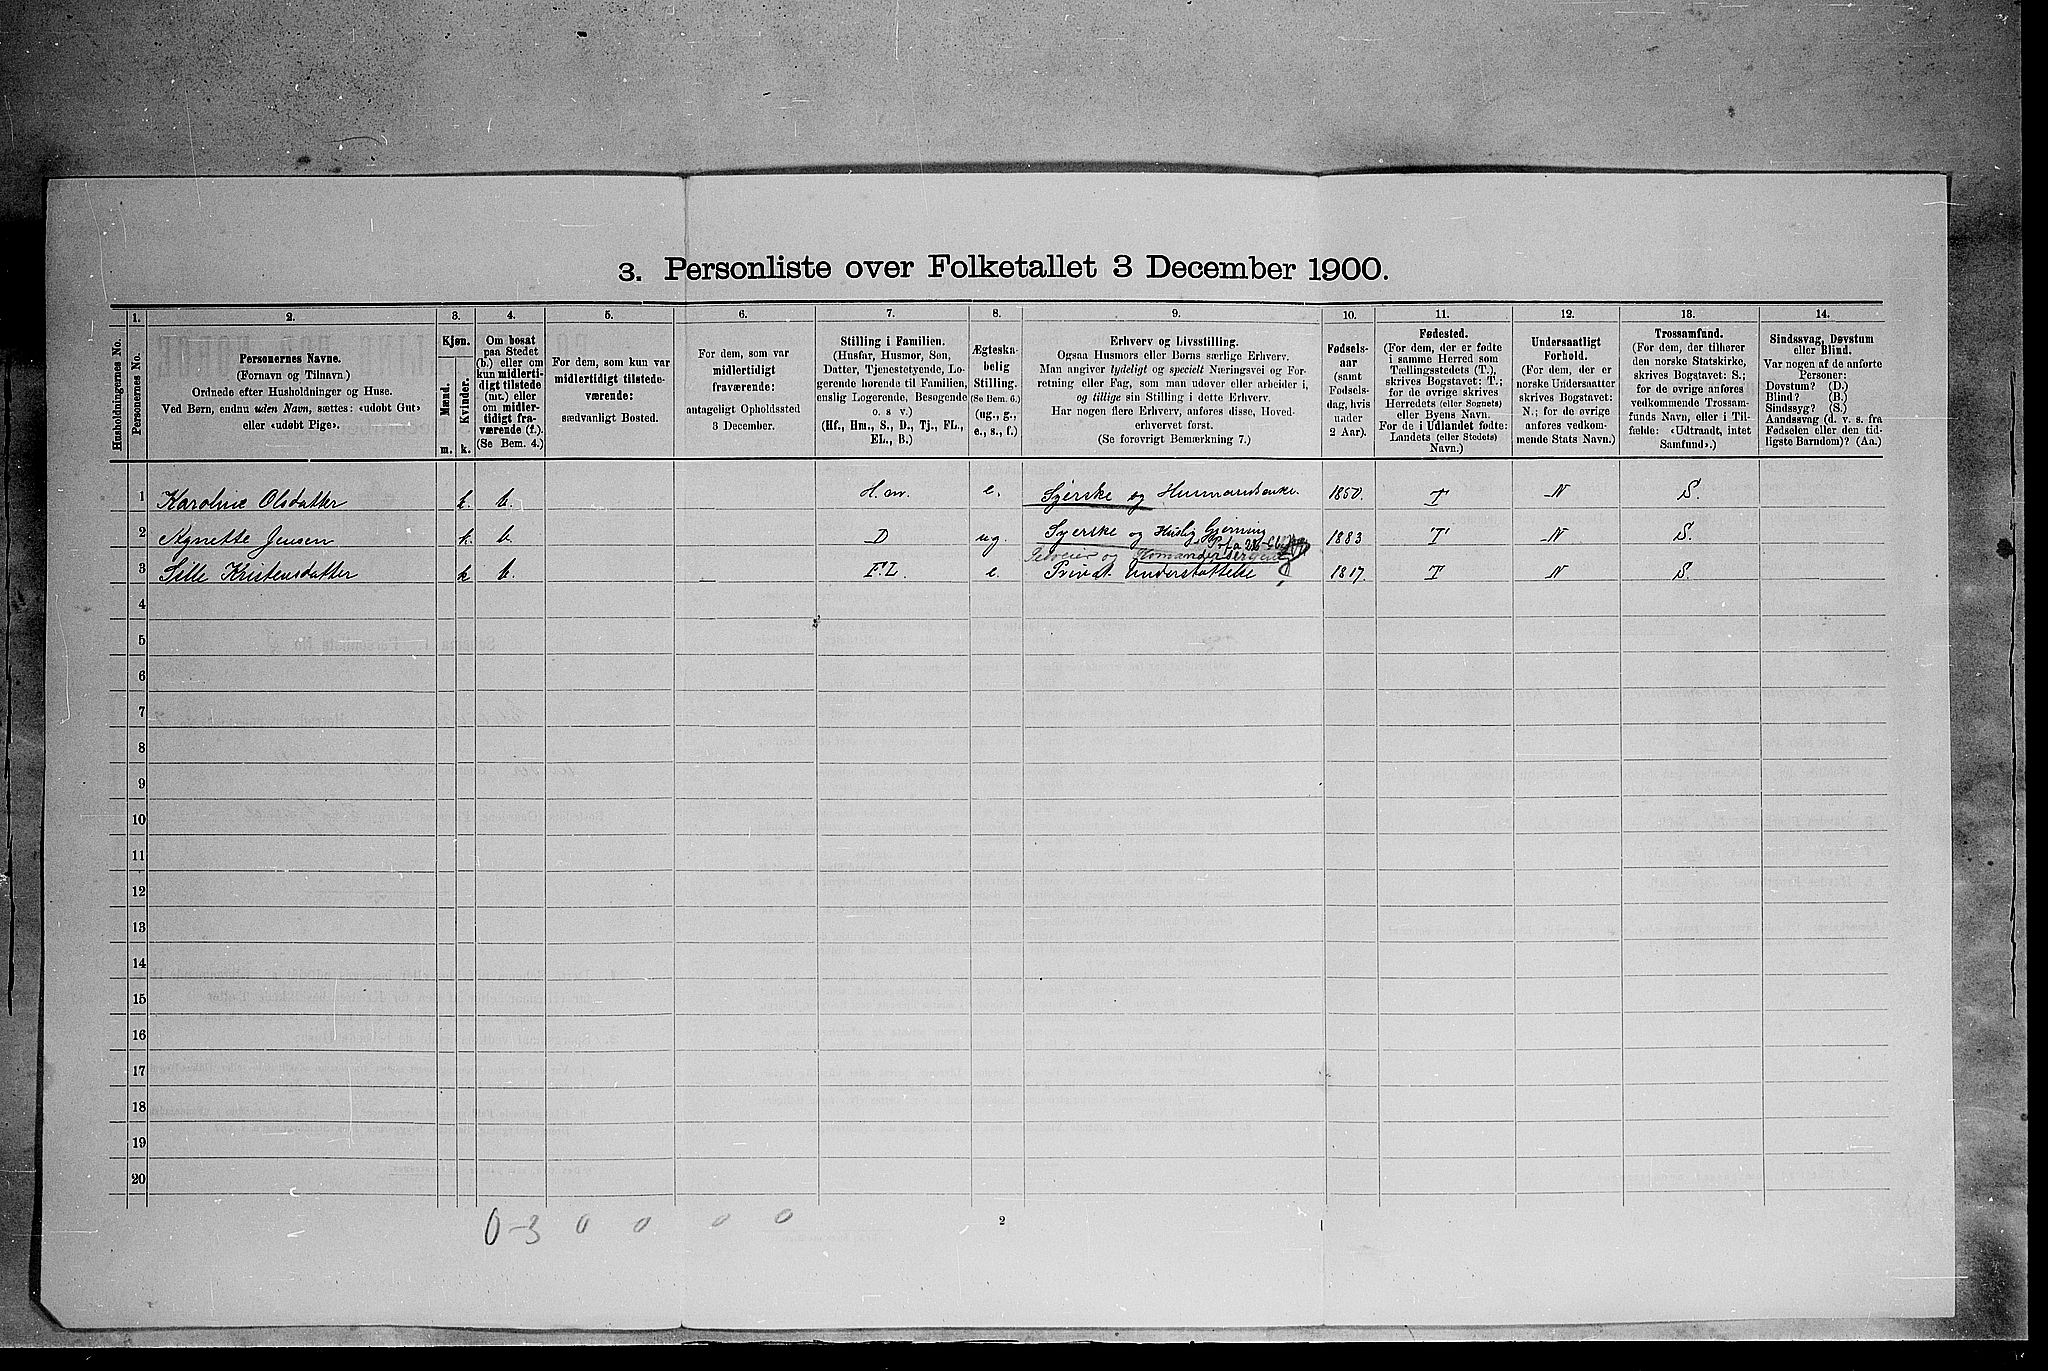 3. Personliste over Folketallet 3 December 1900.
1. 2. 3. 4. 5. 6. 7. 8. 9. 10. 11. 12. 13. 14.
Husholdningernes No.
Personernes No.
Personernes Navne.
(Fornavn og Tilnavn.)
Ordnede efter Husholdninger og Huse.
Ved Børn, endnu uden Navn, sættes: «udøbt Gut»
eller «udøbt Pige».
Kjøn.
Mænd.
Kvinder.
m. k.
Om bosat
paa Stedet
(b.) eller om
kun midlerti-
digt tilstede
(mt.) eller
om midler-
tidigt fra-
værende (f.).
(Se Bem. 4.)
For dem, som kun var
midlertidigt tilstede-
værende:
sædvanligt Bosted.
For dem, som var
midlertidigt
fraværende:
antageligt Opholdssted
3 December.
Stilling i Familien.
(Husfar, Husmor, Søn,
Datter, Tjenestetyende, Lo-
gerende hørende til Familien,
enslig Logerende, Besøgende
o. s v.)
(Hf., Hm., S., D., Tj., FL.,
EL., B.)
Ægteska-
belig
Stilling.
(Se Bem. 6.)
(ug., g.,
e., s., f.)
Erhverv og Livsstilling.
Ogsaa Husmors eller Børns særlige Erhverv.
Man angiver tydeligt og specielt Næringsvei og For-
retning eller Fag, som man udøver eller arbeider i,
og tillige sin Stilling i dette Erhverv.
Har nogen flere Erhverv, anføres disse, Hoved-
erhvervet først.
(Se forøvrigt Bemærkning 7.)
Fødsels-
aar
(samt
Fødsels-
dag, hvis
under
2 Aar).
Fødested.
(For dem, der er fødte
i samme Herred som
Tællingsstedets (T.),
skrives Bogstavet: T.;
for de øvrige skrives
Herredets (eller Sognets)
eller Byens Navn.
For de i Udlandet fødte:
Landets (eller Stedets)
Navn.)
Undersaatligt
Forhold.
(For dem, der er
norske Undersaatter
skrives Bogstavet:
N.; for de øvrige
anføres vedkom-
mende Stats Navn.)
Trossamfund.
(For dem, der tilhører
den norske Statskirke,
skrives Bogstavet: S.;
for de øvrige anføres
vedkommende Trossam-
funds Navn, eller i Til-
fælde: «Udtraadt, intet
Samfund».)
Sindssvag, Døvstum
eller Blind.
Var nogen af de anførte
Personer:
Døvstum? (D.)
Blind? (B.)
Sindssyg? (S.)
Aandssvag (d. v. s. fra
Fødselen eller den tid-
ligste Barndom)? (Aa.)
1 Karoline Olsdatter k. b. H.m. e. Syerske og Husmandsenke. 1850. T N S.
2 Agnette Jensen k. b. D ug. Syerske og Huslig Gjerning 1883 T N S.
3 Sille Kristensdatter k b. F.L. e. Privat Understøttelse 1817. T N S.
4
5
6
7
8
9
10
11
12
13
14
15
16
17
18
19
20
0-3 0 0 0 0
2